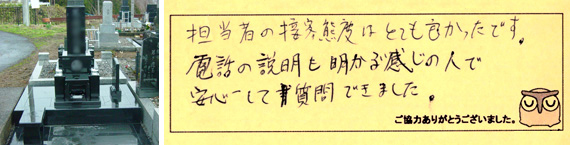 担当者の接客態度はとても良かったです。
電話の説明も明かるい感じの人で
安心して質問できました。
ご協力ありがとうございました。